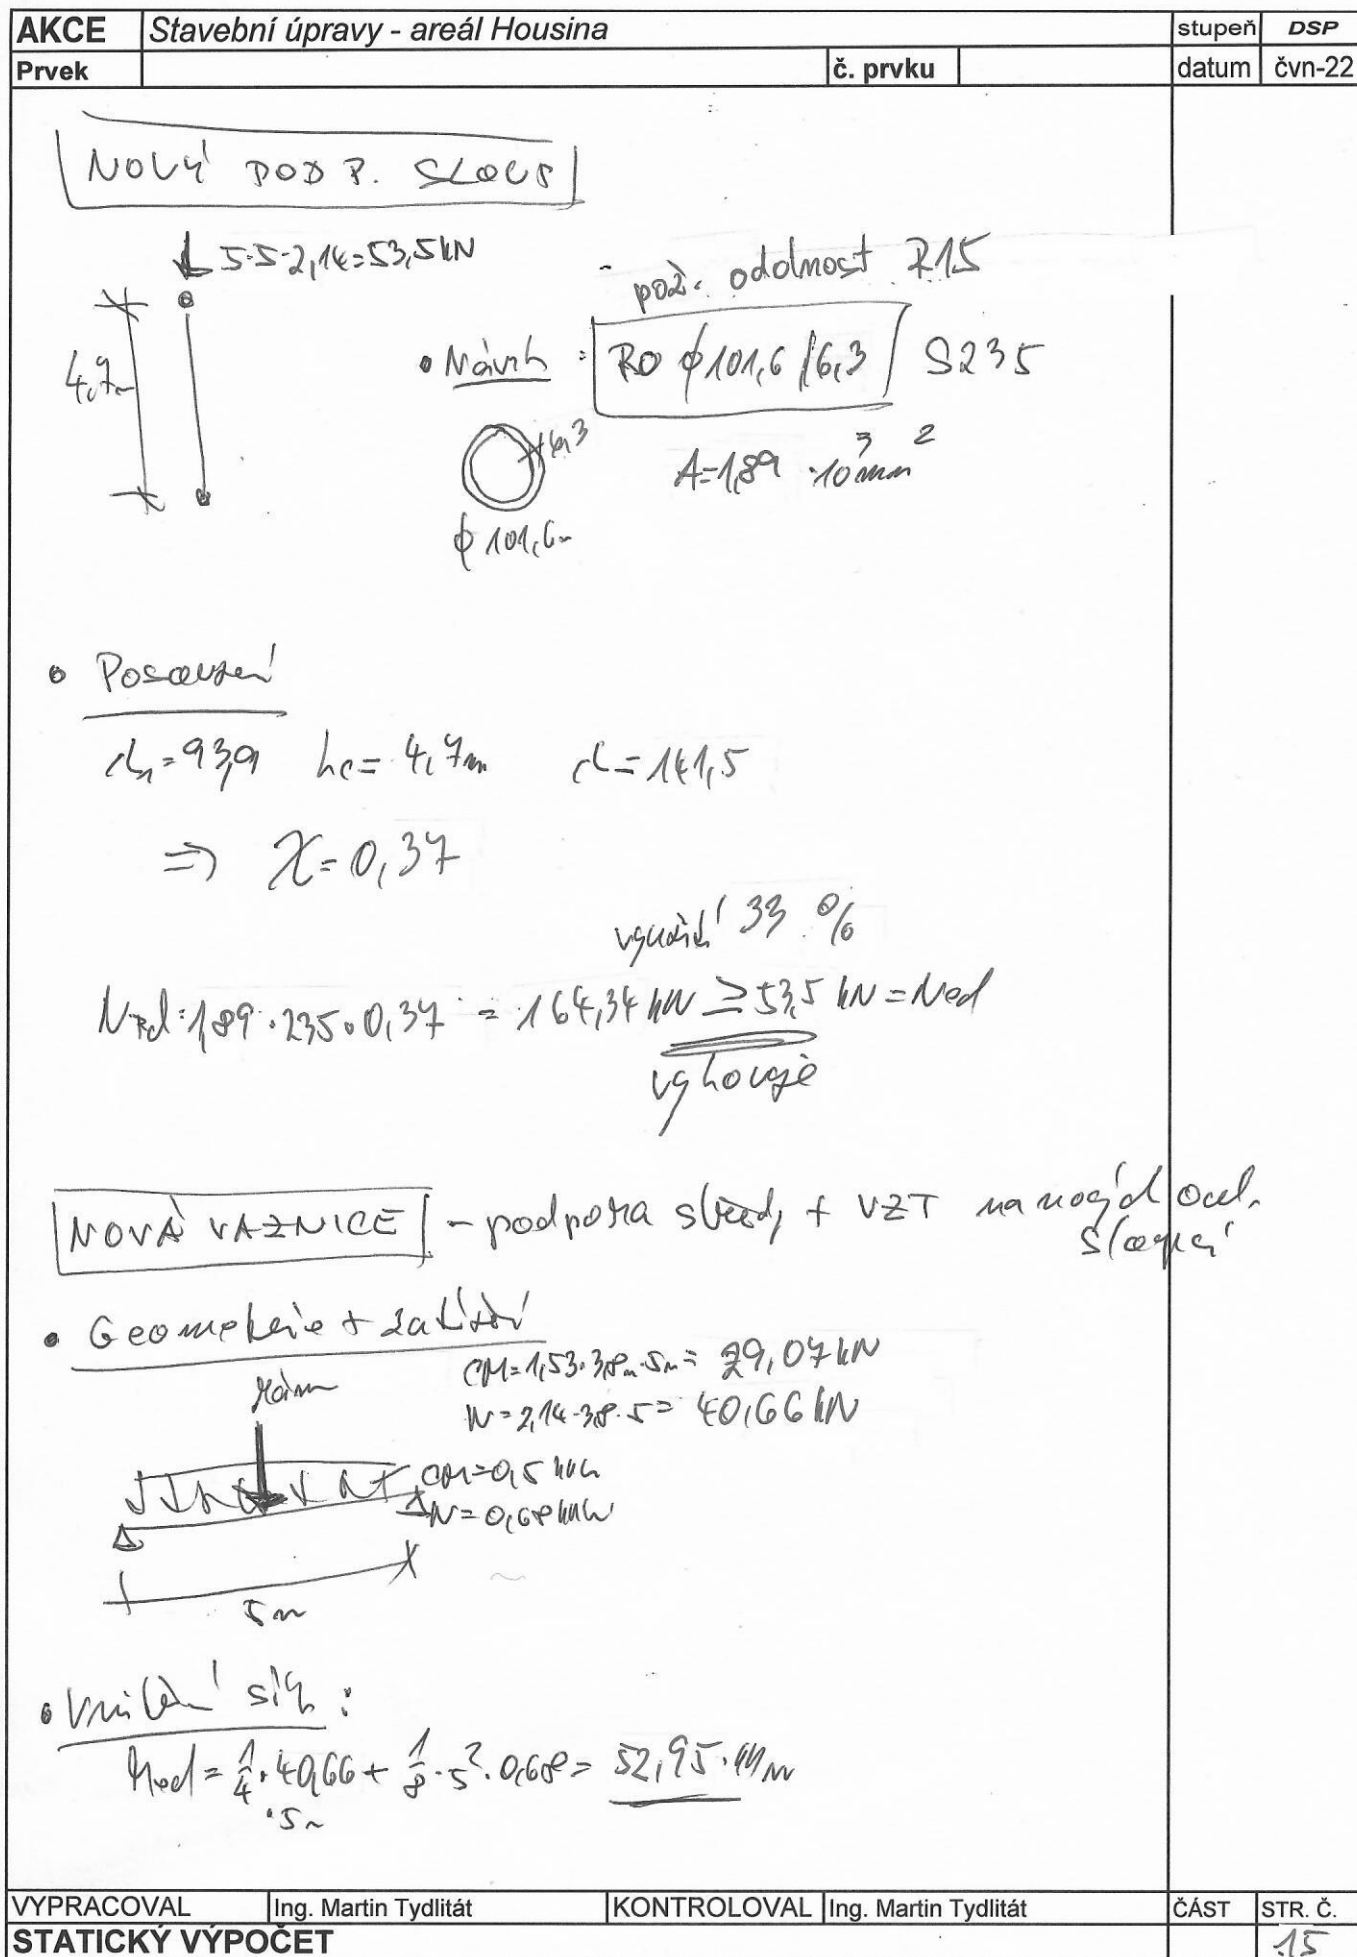 AKCE Stavební úpravy - areál Housina stupeň DSP
Prvek č. prvku datum čvn-22
NOVÝ PODP. SLOUP
5·5·2,14=53,5kN
pož. odolnost R15
4,7m
• Návrh : RO φ101,6/6,3 S235
6,3
A=1,89·10³mm²
φ101,6
• Posouzení
λ₁=93,9 hc=4,7m λ=141,5
=> χ=0,37
využití 33 %
NRd=1,89·235·0,37 = 164,34 kN ≥ 53,5 kN = Ned
vyhovuje
NOVÁ VAZNICE - podpora střechy + VZT na nových ocel.
sloupcí
• Geometrie + zatížení
CH=1,53·3,8m·5m= 29,07kN
Rám
N=2,14·3,8·5= 40,66kN
CH=0,5 kN/m
N=0,68kN/m
5m
• Vnitřní síly :
Med = 1/4·40,66 + 1/8·5²·0,68= 52,95·kNm
·5m
VYPRACOVAL Ing. Martin Tydlitát KONTROLOVAL Ing. Martin Tydlitát ČÁST STR. Č.
STATICKÝ VÝPOČET 15